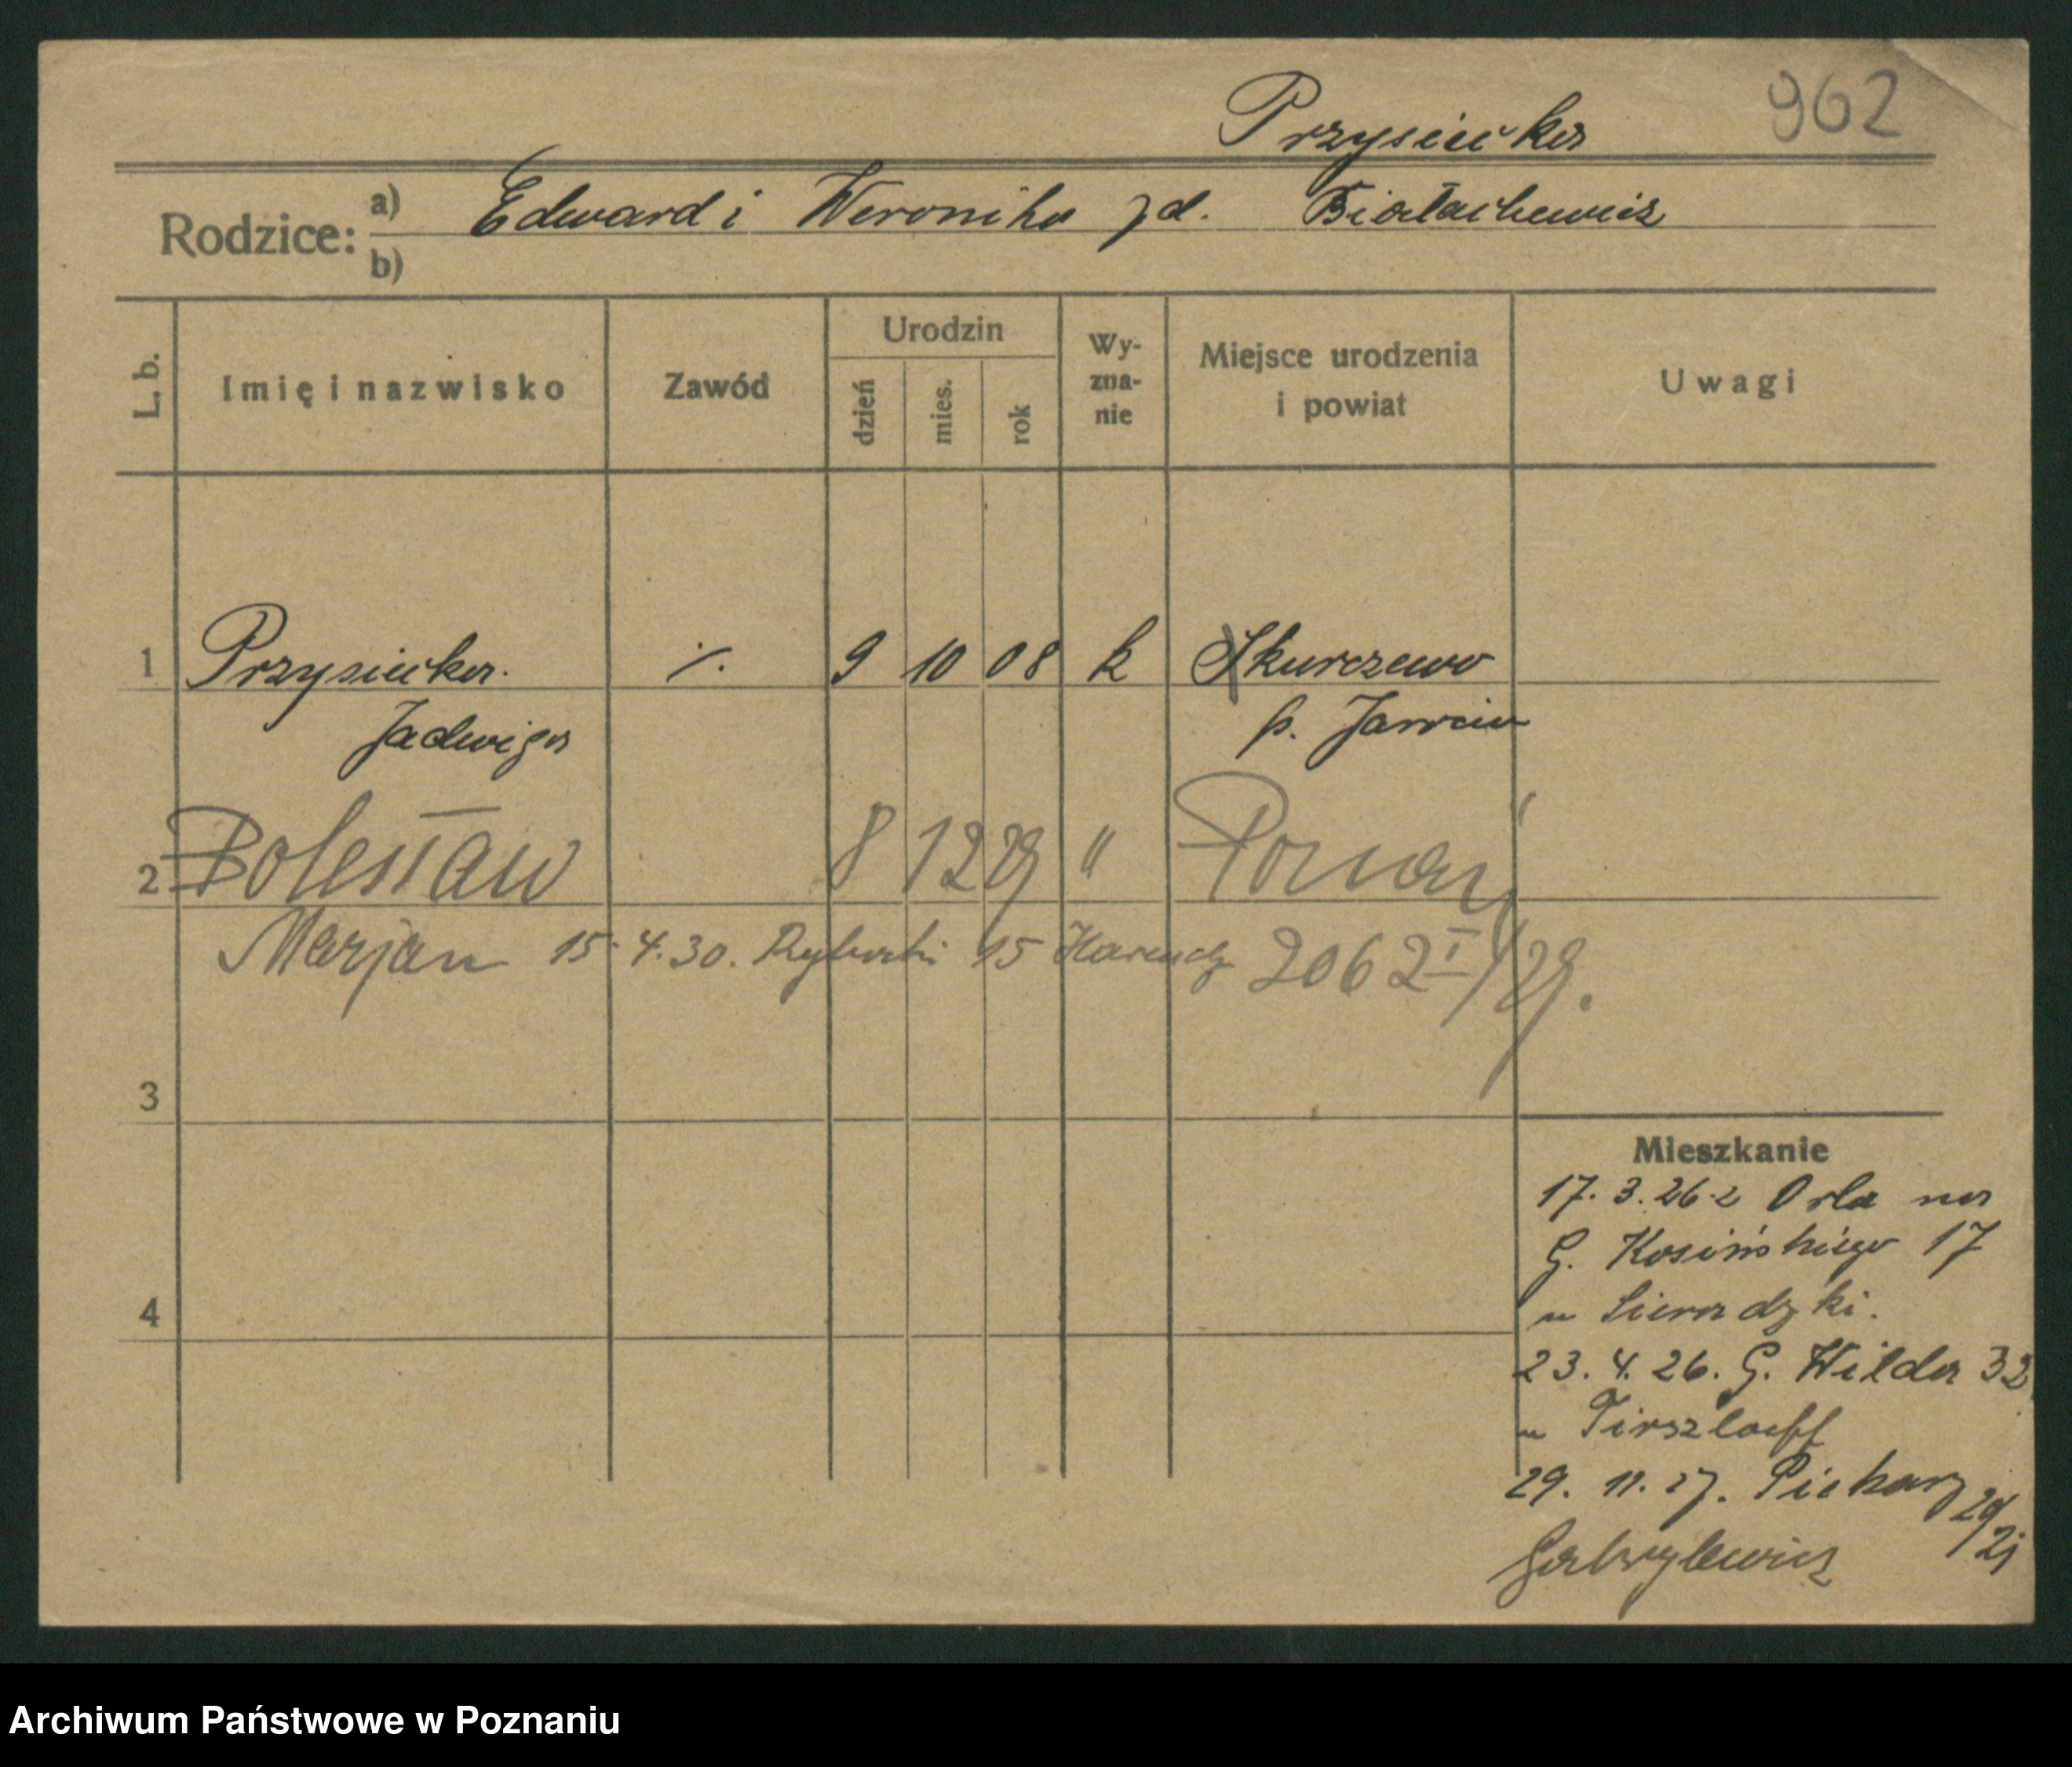 962
Przysiecka
Rodzice: a) Edward i Weronika zd. Białachewicz
b)
L. b. Imię i nazwisko Zawód Urodzin dzień mies. rok Wy-zna-nie Miejsce urodzenia i powiat Uwagi
1 Przysiecka. ./. 9 10 08 k Skurczewo
Jadwiga p. Jarocin
2 Bolesław 8 12 29 " Poznań
Marjan 15.4.30. Rybaki 15 2062 I/29.
3
Mieszkanie
17.3.26 z Orla na
G. Kosińskiego 17
u Sieradzki.
4
23.4.26. G. Wilda 32
u Tirszloeff
29.11.27. Piekary 20/21
Gabrylewicz
Archiwum Państwowe w Poznaniu